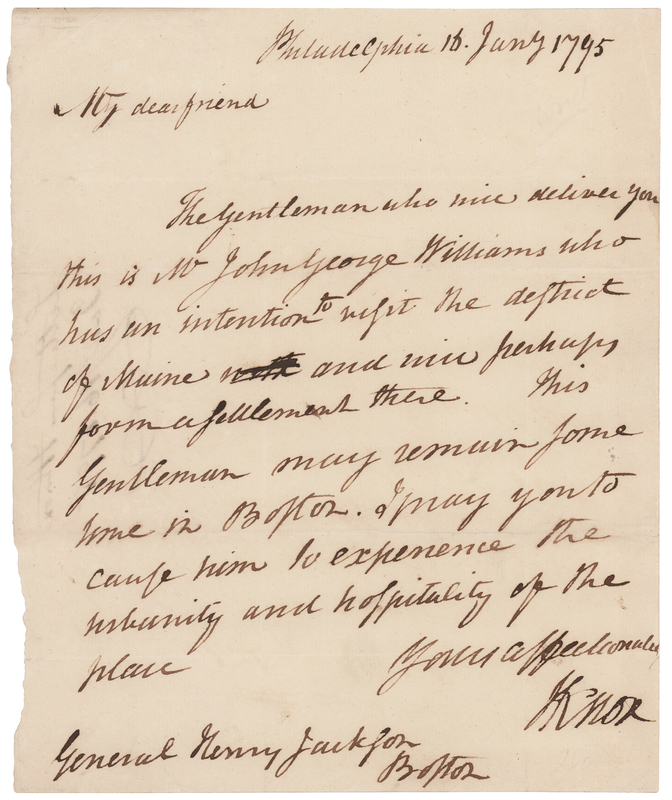 Philadelphia 18. Jany 1795
My dear friend
The Gentleman who will deliver you
this is Mr John George Williams who
has an intention to visit the district
of Maine and will perhaps
form a settlement there. This
Gentleman may remain some
time in Boston. I pray you to
cause him to experience the
urbanity and hospitality of the
place
Yours affectionately
HKnox
General Henry Jackson
Boston